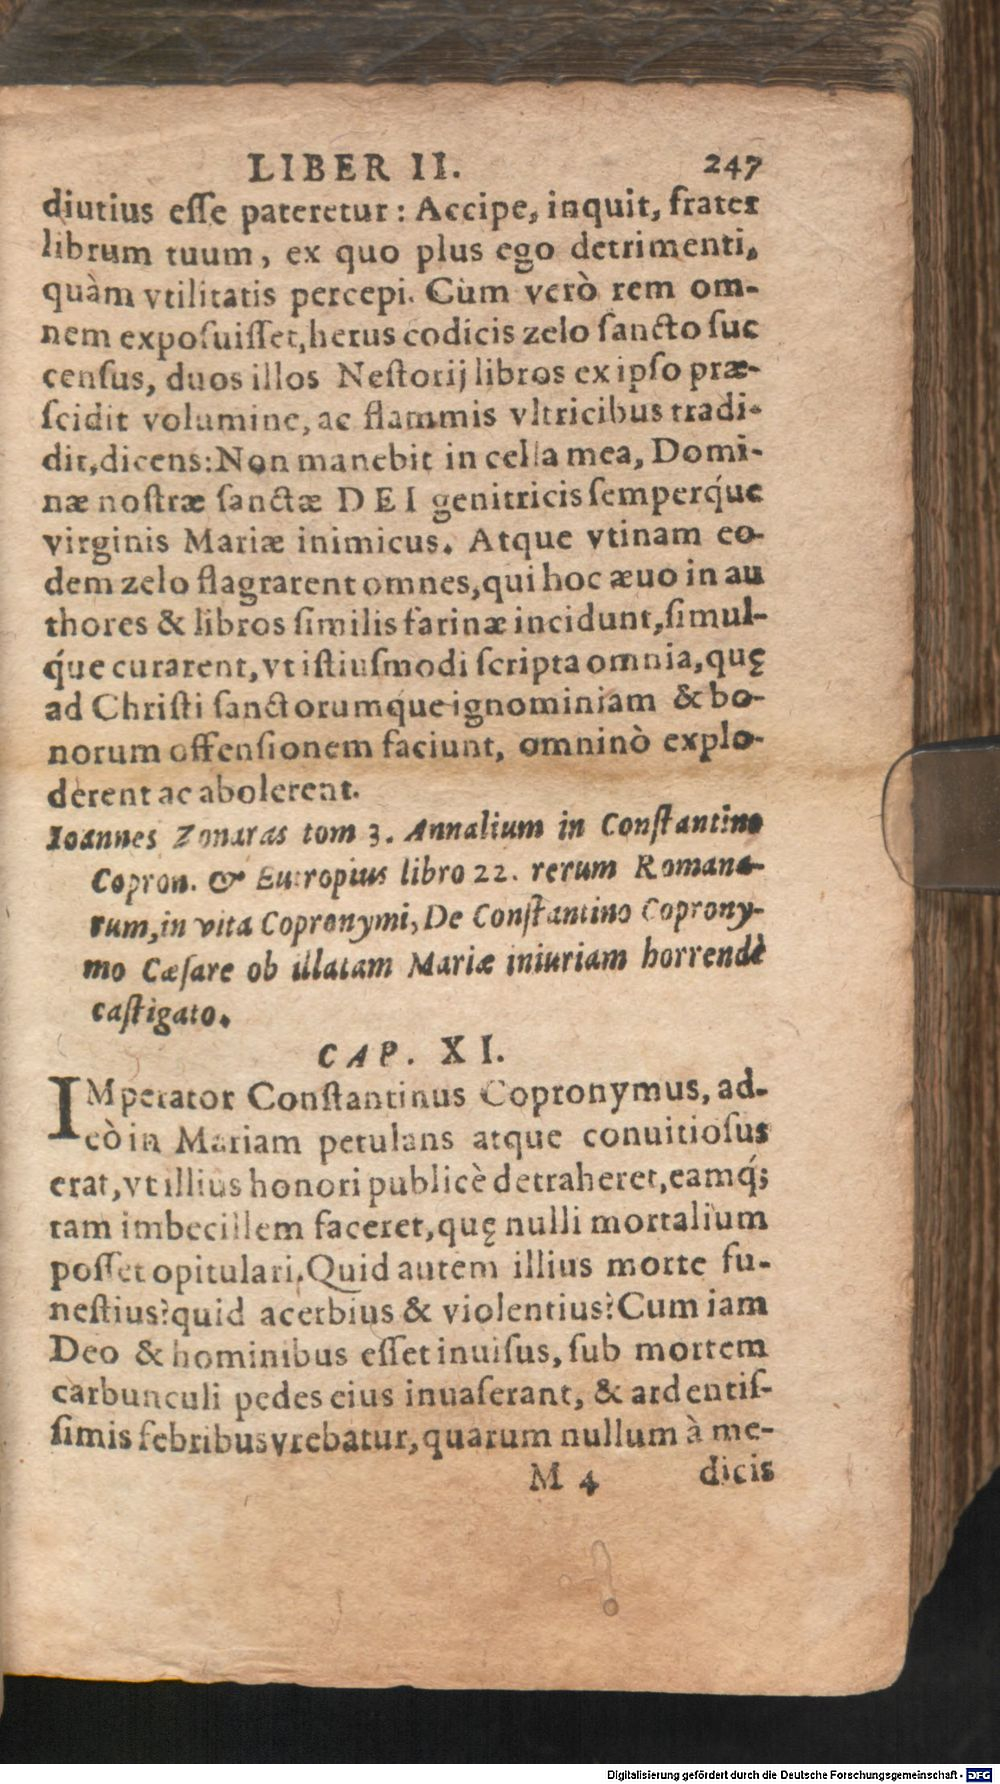 LIBER II. 247
diutius eſſe pateretur: Accipe, inquit, frater
librum tuum, ex quo plus ego detrimenti,
quàm vtilitatis percepi. Cùm verò rem om-
nem expoſuiſſet, herus codicis zelo ſancto ſuc
cenſus, duos illos Neſtorij libros ex ipſo præ-
ſcidit volumine, ac flammis vltricibus tradi-
dit, dicens: Non manebit in cella mea, Domi-
næ noſtræ ſanctæ DEI genitricis ſemperq́ue
virginis Mariæ inimicus. Atque vtinam eo-
dem zelo flagrarent omnes, qui hoc æuo in au
thores & libros ſimilis farinæ incidunt, ſimul-
q́ue curarent, vt iſtiuſmodi ſcripta omnia, quę
ad Chriſti ſanctorumque ignominiam & bo-
norum offenſionem faciunt, omninò explo-
derent ac abolerent.
Ioannes Zonaras tom 3. Annalium in Conſtantino
Copron. & Eutropius libro 22. rerum Romana-
rum, in vita Copronymi, De Conſtantino Coprony-
mo Cæſare ob illatam Mariæ iniuriam horrendè
caſtigato.
CAP. XI.
IMperator Conſtantinus Copronymus, ad-
eò in Mariam petulans atque conuitioſus
erat, vt illius honori publicè detraheret, eamq́;
tam imbecillem faceret, quę nulli mortalium
poſſet opitulari. Quid autem illius morte fu-
neſtius? quid acerbius & violentius? Cum iam
Deo & hominibus eſſet inuiſus, ſub mortem
carbunculi pedes eius inuaſerant, & ardentiſ-
ſimis febribus vrebatur, quarum nullum à me-
M 4 dicis
Digitalisierung gefördert durch die Deutsche Forschungsgemeinschaft - DFG